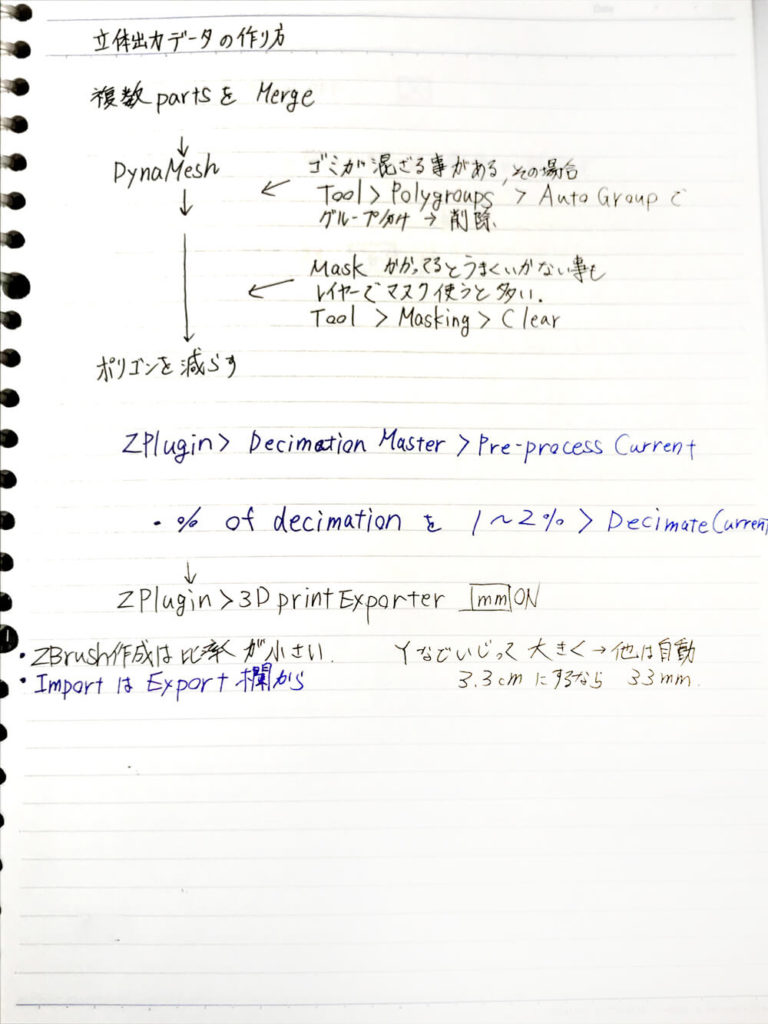 立体出力データの作り方
複数partsを Merge
↓
DynaMesh
↓
← ゴミが混ざる事がある,その場合
Tool > Polygroups > Auto Groupで
グループ分け → 削除
← Mask かかってるとうまくいかない事も
レイヤーでマスク使うと多い.
Tool > Masking > Clear
ポリゴンを減らす
ZPlugin > Decimation Master > Pre-process Current
・% of decimation を 1〜2% > Decimate Current
↓
ZPlugin > 3D print Exporter mm ON
・ZBrush作成は比率が小さい. Yなどいじって大きく→他は自動
・Import は Export 欄から 3.3cmにするなら 33mm.